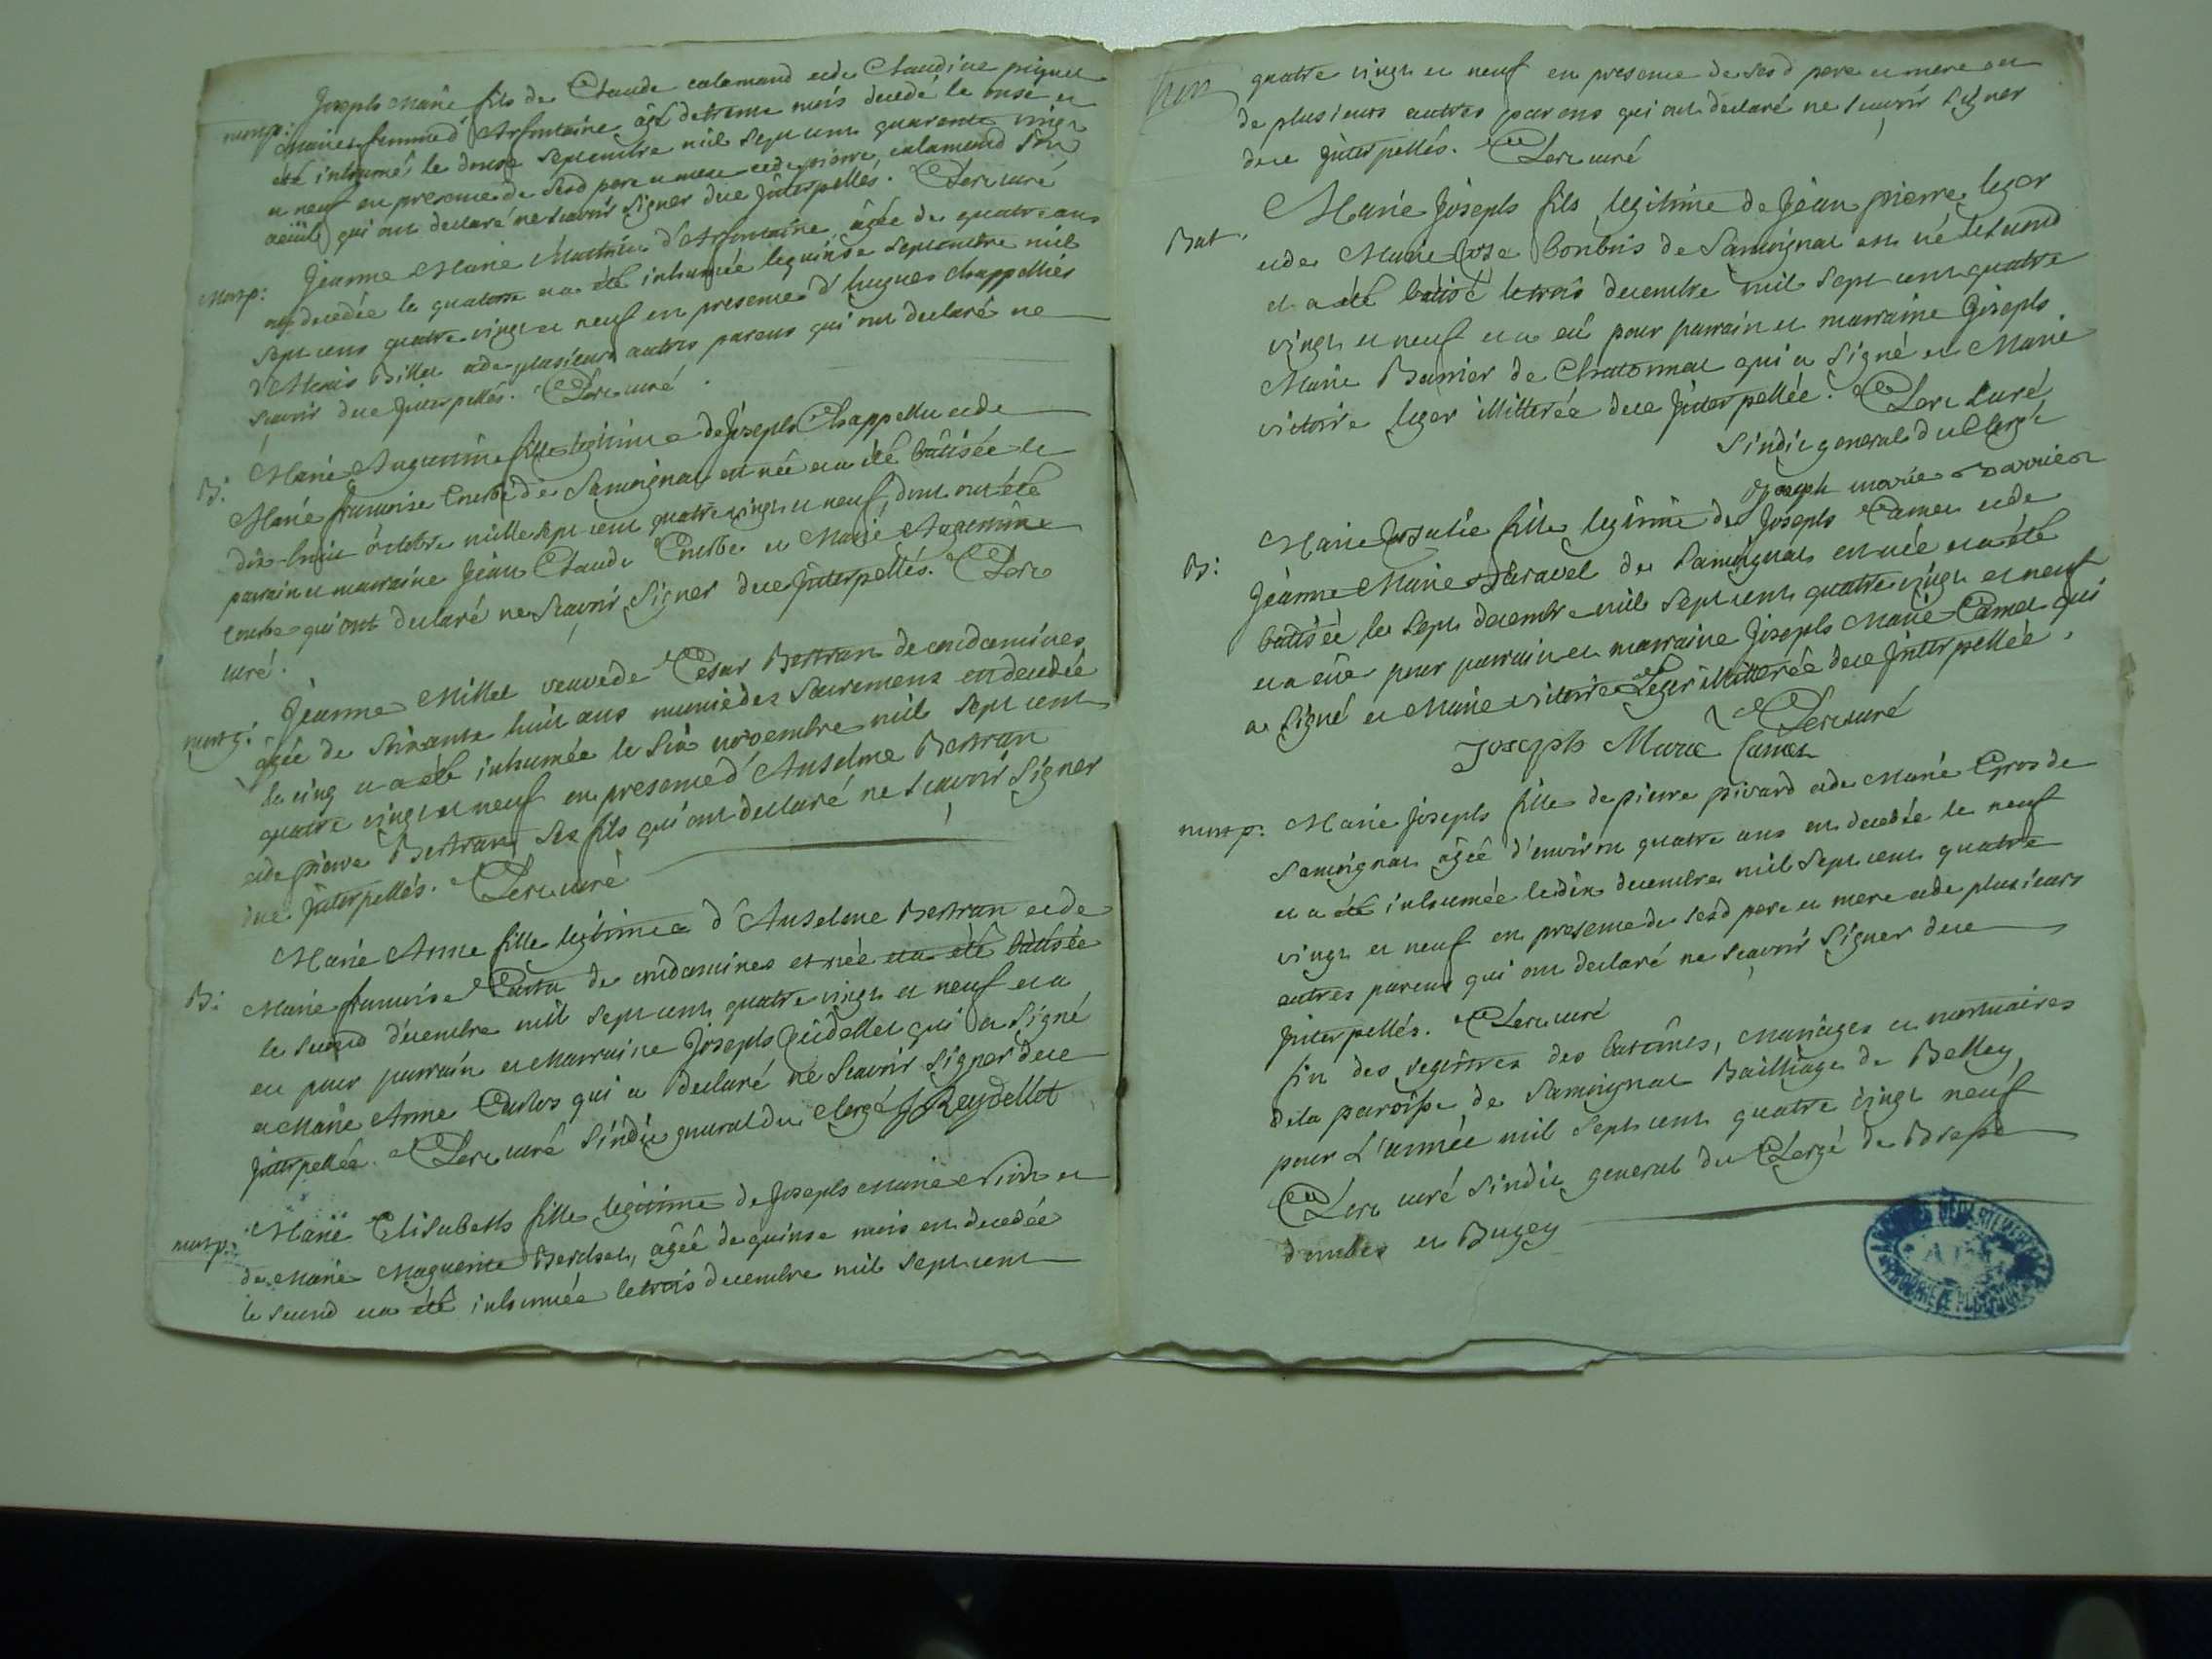 Joseph Marie fils de Claude calamand et de Claudine
mortp:
femme d'Arfontaine âgé de trente mois decedé le onse et
été inhumé le douse septembre mil sept cent quarente vingt
et neuf en presence de sesd pere et mere et de pierre calamand son
qui ont declaré ne scavoir signer de ce Jnterpellés. Clerc curé
Jeanne Marie d'Arfontaine âgée de quatre ans
mortp:
decedée le quatorse et a été inhumée le quinse septembre mil
sept cens quatre vingt et neuf en presence d'hugues chappellier
d'Alexis Billet et de plusieurs autres parens qui ont declaré ne
scavoir de ce Jnterpellés. Clerc curé
Marie Augustine fille legitime de Joseph Chappellu et de
B:
Marie francoise Courbe de Samoignat est née et a été batisée le
dix-huit octobre mille sept cent quatre vingt et neuf, dont ont été
parrain et marraine Jean Claude Courbe et Marie Augustine
Courbe qui ont declaré ne scavoir signer de ce Jnterpellés. Clerc
curé.
Jeanne Millet veuve de Cesar Bertran de condamines
mortg:
âgée de soixante huit ans munie des sacremens est decedée
le cinq et a été inhumée le six novembre mil sept cent
quatre vingt et neuf en presence d'Anselme Bertran
et de pierre Bertran ses fils qui ont declaré ne scavoir signer
de ce Jnterpellés. Clerc curé
Marie Anne fille legitime d'Anselme Bertran et de
B:
Marie francoise de condamines et née et a été batisée
le second decembre mil sept cent quatre vingt et neuf et a
eu pour parrain et marraine Joseph Reidellet qui a signé
et Marie Anne qui a declaré ne scavoir signer de ce
Jnterpellée. Clerc curé sindic general du clergé J Reydellet
Marie Elisabeth fille legitime de Joseph Marie et
mortp:
de Marie Marguerite Berthet, âgée de quinse mois est decedée
le second et a été inhumée le trois decembre mil sept cent
quatre vingt et neuf en presence de sesd pere et mere et
de plusieurs autres parens qui ont declaré ne scavoir signer
de ce Jnterpellés. Clerc curé
Marie Joseph fils legitime de Jean pierre leger
Bat.
et de Marie Rose Bonbois de Samoignat est né le second
et a été batisé le trois decembre mil sept cent quatre
vingt et neuf et a eû pour parrain et marraine Joseph
Marie Barrier de Chatonnat qui a signé et Marie
victoire leger illitterée de ce Jnterpellée. Clerc Curé
sindic general du Clergé
Joseph marie Barrier
Marie Rosalie fille legitime de Joseph Camet et de
B:
Jeanne Marie Daravel de Samoignat est née et a été
batisée le sept decembre mil sept cent quatre vingt et neuf
et a eûe pour parrain et marraine Joseph Marie Camet qui
a signé et Marie victoire Leger illitterée de ce Jnterpellée.
Clerc curé
Joseph Marie Camet
mortp: Marie Joseph fille de pierre pivard et de Marie Gros de
Samoignat âgée d'environ quatre ans est decedée le neuf
et a été inhumée le dix decembre mil sept cent quatre
vingt et neuf en presence de sesd pere et mere et de plusieurs
autres parens qui ont declaré ne scavoir signer de ce
Jnterpellés. Clerc curé
fin des registres des batêmes, mariages et mortuaires
de la paroisse de Samoignat Bailliage de Belley,
pour L'année mil sept cent quatre vingt neuf
Clerc curé sindic general du Clergé de Bresse
dombes et Bugey